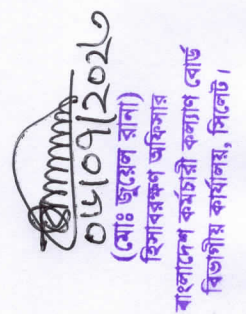 ০৮/০৭/২০২৬
(মোঃ জুয়েল রানা)
হিসাবরক্ষণ অফিসার
বাংলাদেশ কর্মচারী কল্যাণ বোর্ড
বিভাগীয় কার্যালয়, সিলেট।